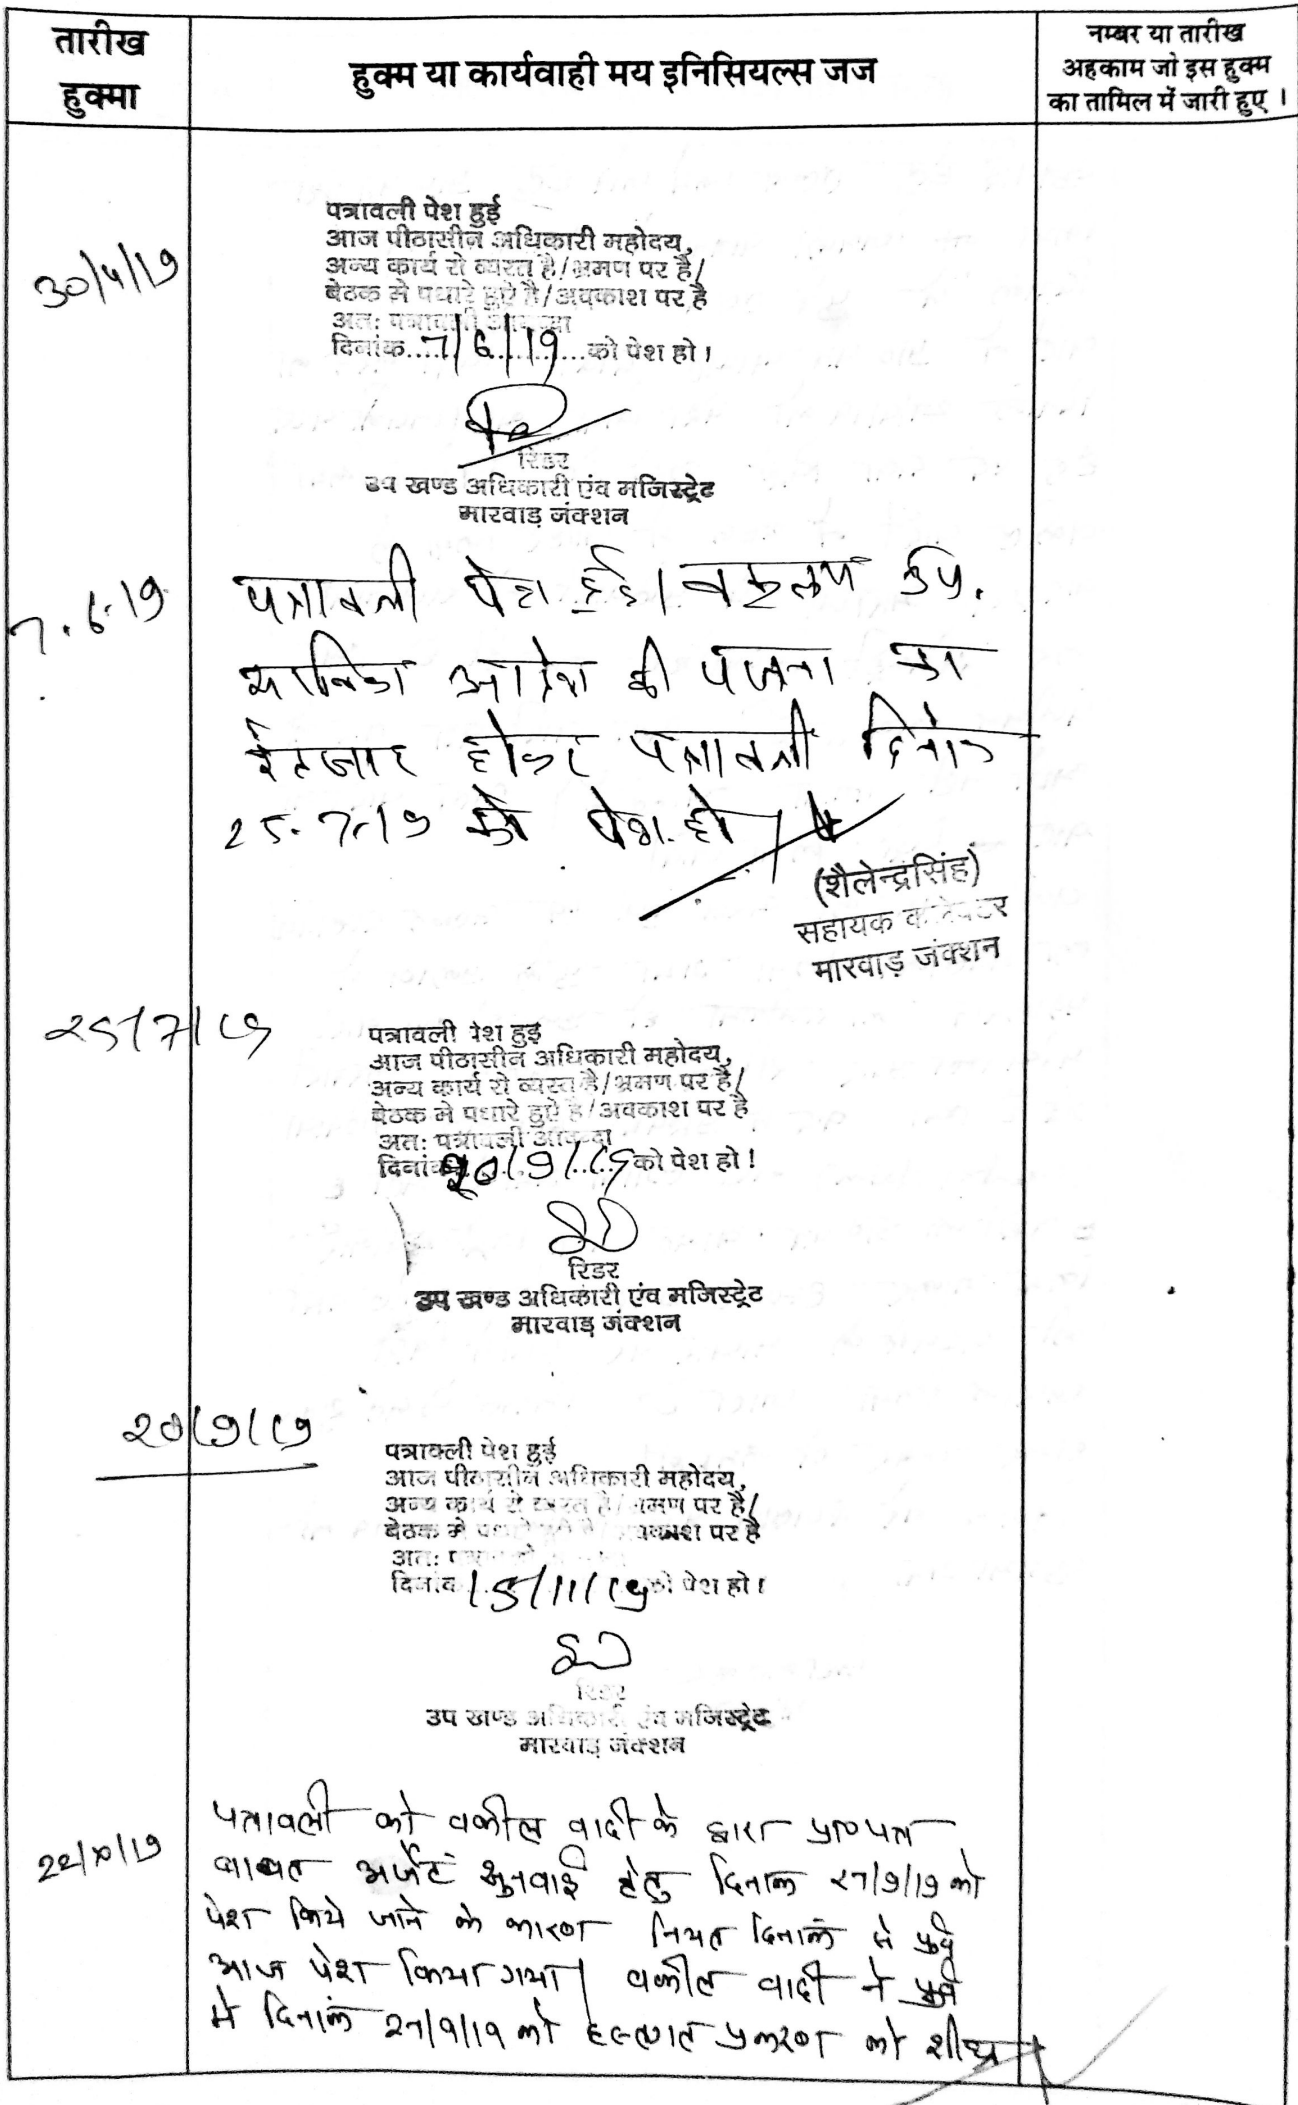 तारीख
हुक्मा
हुक्म या कार्यवाही मय इनिसियल्स जज
नम्बर या तारीख
अहकाम जो इस हुक्म
का तामिल में जारी हुए ।
30/4/19
पत्रावली पेश हुई
आज पीठासीन अधिकारी महोदय,
अन्य कार्य से व्यस्त है/भ्रमण पर है/
बेठक मे पधारे हुऐ है/अवकाश पर है
अतः पत्रावली आईन्दा
दिनांक....7/6/19....को पेश हो।
रिडर
उप खण्ड अधिकारी एंव मजिस्ट्रेट
मारवाड़ जंक्शन
7.6.19
पत्रावली पेश हुई। वकुलाय उप.
आदेश की पालना का
ईन्तजार होकर पत्रावली दिनांक
25.7.19 को पेश हो।
(शैलेन्द्रसिंह)
सहायक कलेक्टर
मारवाड़ जंक्शन
25/7/19
पत्रावली पेश हुई
आज पीठासीन अधिकारी महोदय,
अन्य कार्य से व्यस्त है/भ्रमण पर है/
बेठक मे पधारे हुऐ है/अवकाश पर है
अतः पत्रावली आईन्दा
दिनांक 20/9/19 को पेश हो!
रिडर
उप खण्ड अधिकारी एंव मजिस्ट्रेट
मारवाड़ जंक्शन
20/9/19
पत्रावली पेश हुई
आज पीठासीन अधिकारी महोदय,
अन्य कार्य से व्यस्त है/भ्रमण पर है/
बेठक मे पधारे हुऐ है/अवकाश पर है
अतः
दिनांक 15/11/19 को पेश हो।
रिडर
उप खण्ड अधिकारी एंव मजिस्ट्रेट
मारवाड़ जंक्शन
22/10/19
पत्रावली को वकील वादी के द्वारा प्रा०पत्र
बाबत अर्जेंट सुनवाई हेतु दिनांक 27/9/19 को
पेश किये जाने के कारण नियत दिनांक से पूर्व
आज पेश किया गया। वकील वादी ने पूर्व
में दिनांक 27/9/19 को हस्तगत प्रकरण को शीघ्र